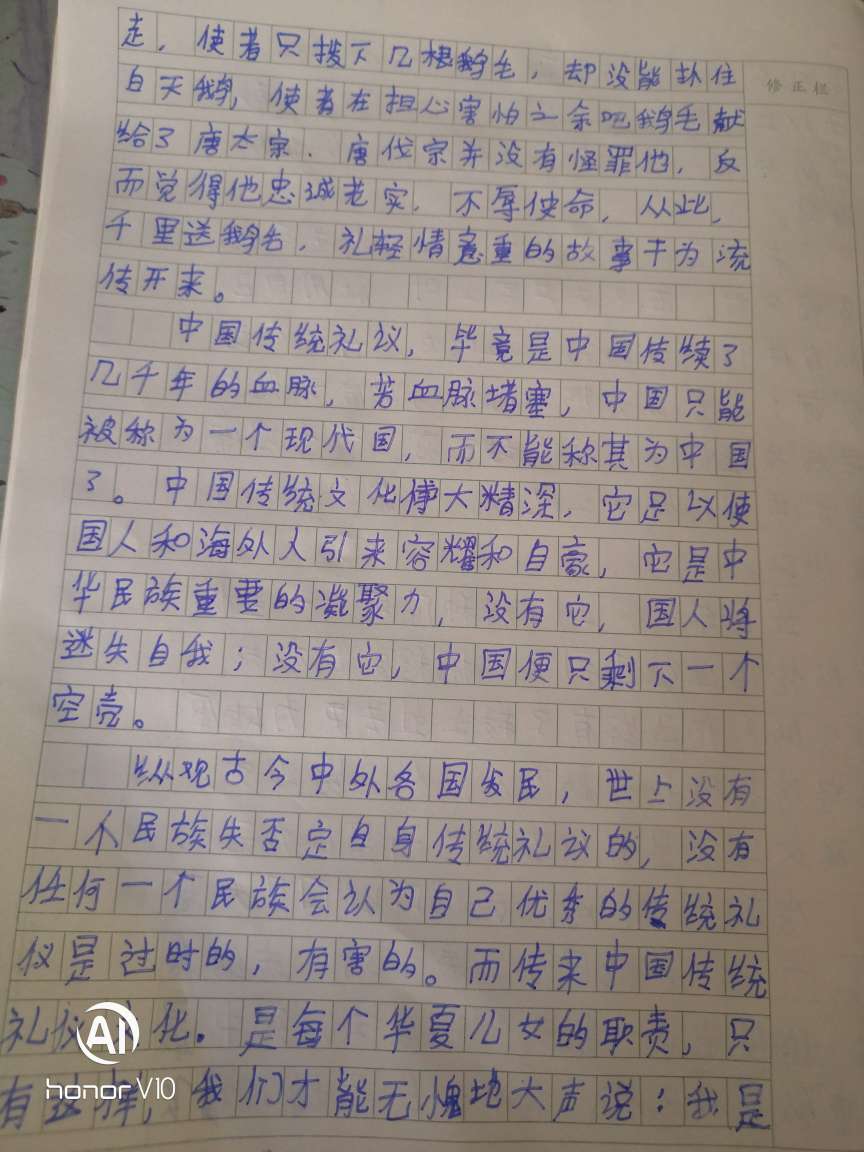 走，使者只拨下几根鹅毛，却没能扑住
修正栏
白天鹅，使者在担心害怕之余吧鹅毛献
给了唐太宗．唐代宗并没有怪罪他，反
而觉得他忠诚老实．不辱使命，从此，
千里送鹅毛，礼轻情意重的故事干为流
传开来。
中国传统礼议，毕竟是中国传续了
几千年的血脉，若血脉堵塞，中国只能
被称为一个现代国，而不能称其为中国
了。中国传统文化博大精深，它足以使
国人和海外人引来容耀和自豪，它是中
华民族重要的凝聚力，没有它，国人将
迷失自我；没有它，中国便只剩下一个
空壳。
纵观古今中外各国发民，世上没有
一个民族失否定自身传统礼议的，没有
任何一个民族会认为自己优秀的传统礼
仪是过时的，有害的。而传来中国传统
礼仪文化．是每个华夏儿女的职责，只
有这样，我们才能无愧地大声说：我是
AI
honor V10